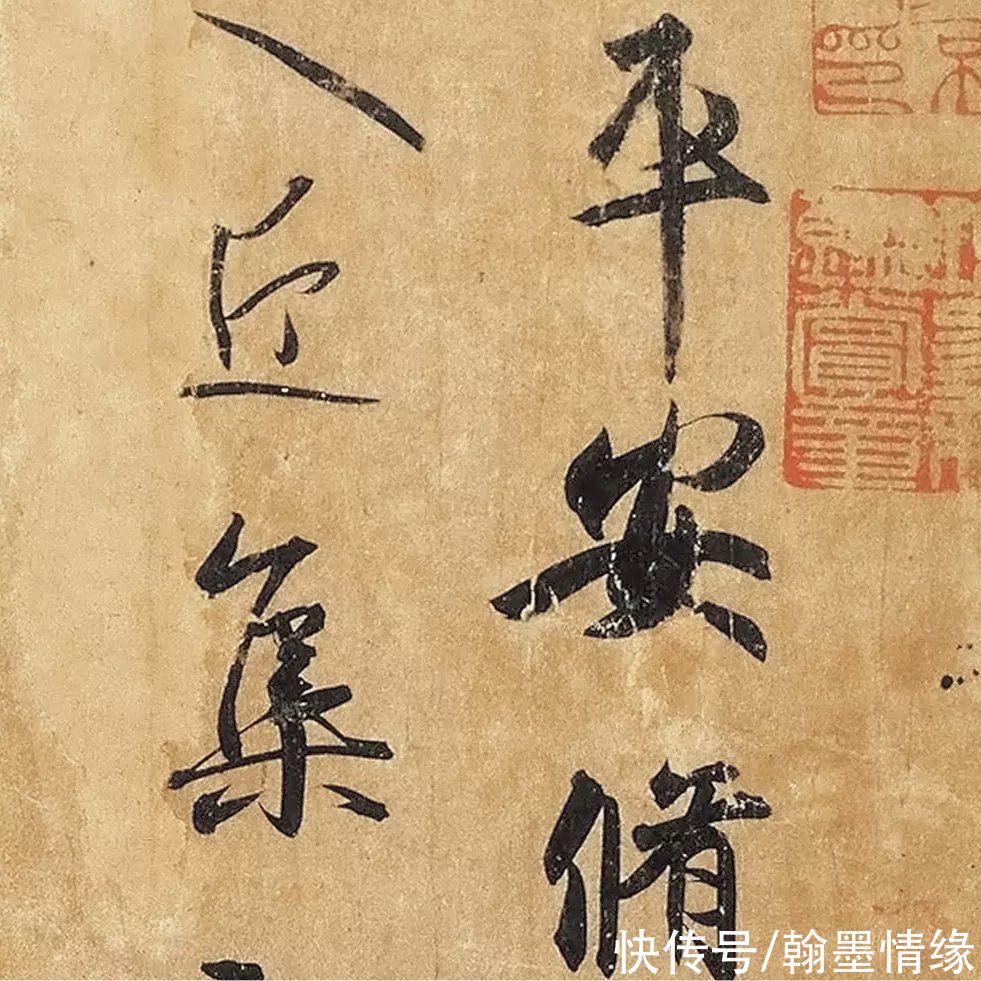 平安脩
近集
快传号/翰墨情缘